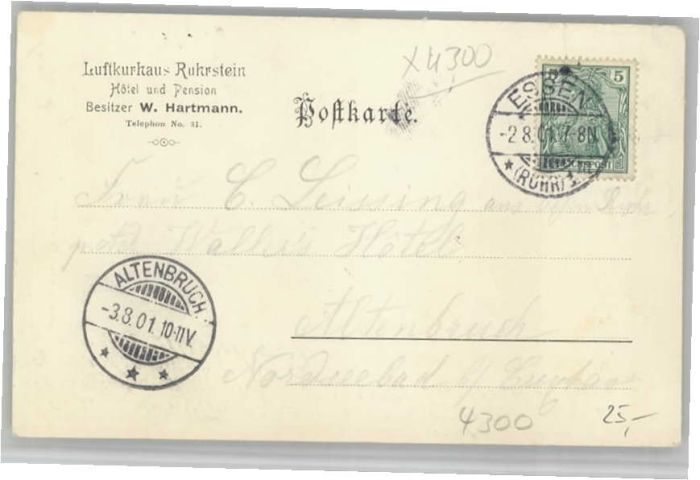 Luftkurhaus Ruhrstein
Hôtel und Pension
Besitzer W. Hartmann.
Telephon No. 31.
Postkarte.
X4300
5
ESSEN
-2.8.01. 7-8N.
*(RUHR)1*
Frau C. Leissing
Waller's Hôtel
ALTENBRUCH
-3.8.01. 10-11V.
* * *
Altenbruch
Nordseebad
4300
25,-